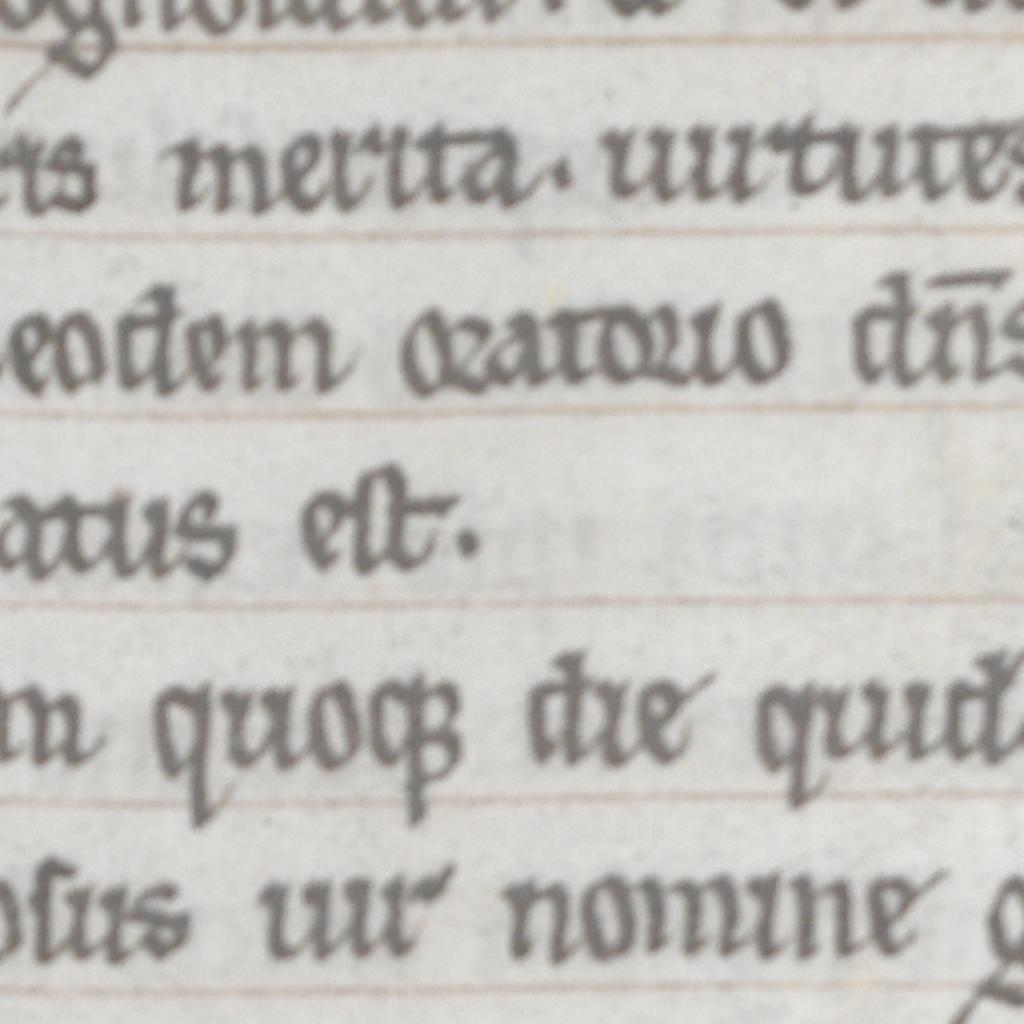 merita. uirtutes
eodem oratorio dn̄s
atus est.
quoqꝫ die quid
uir nomine